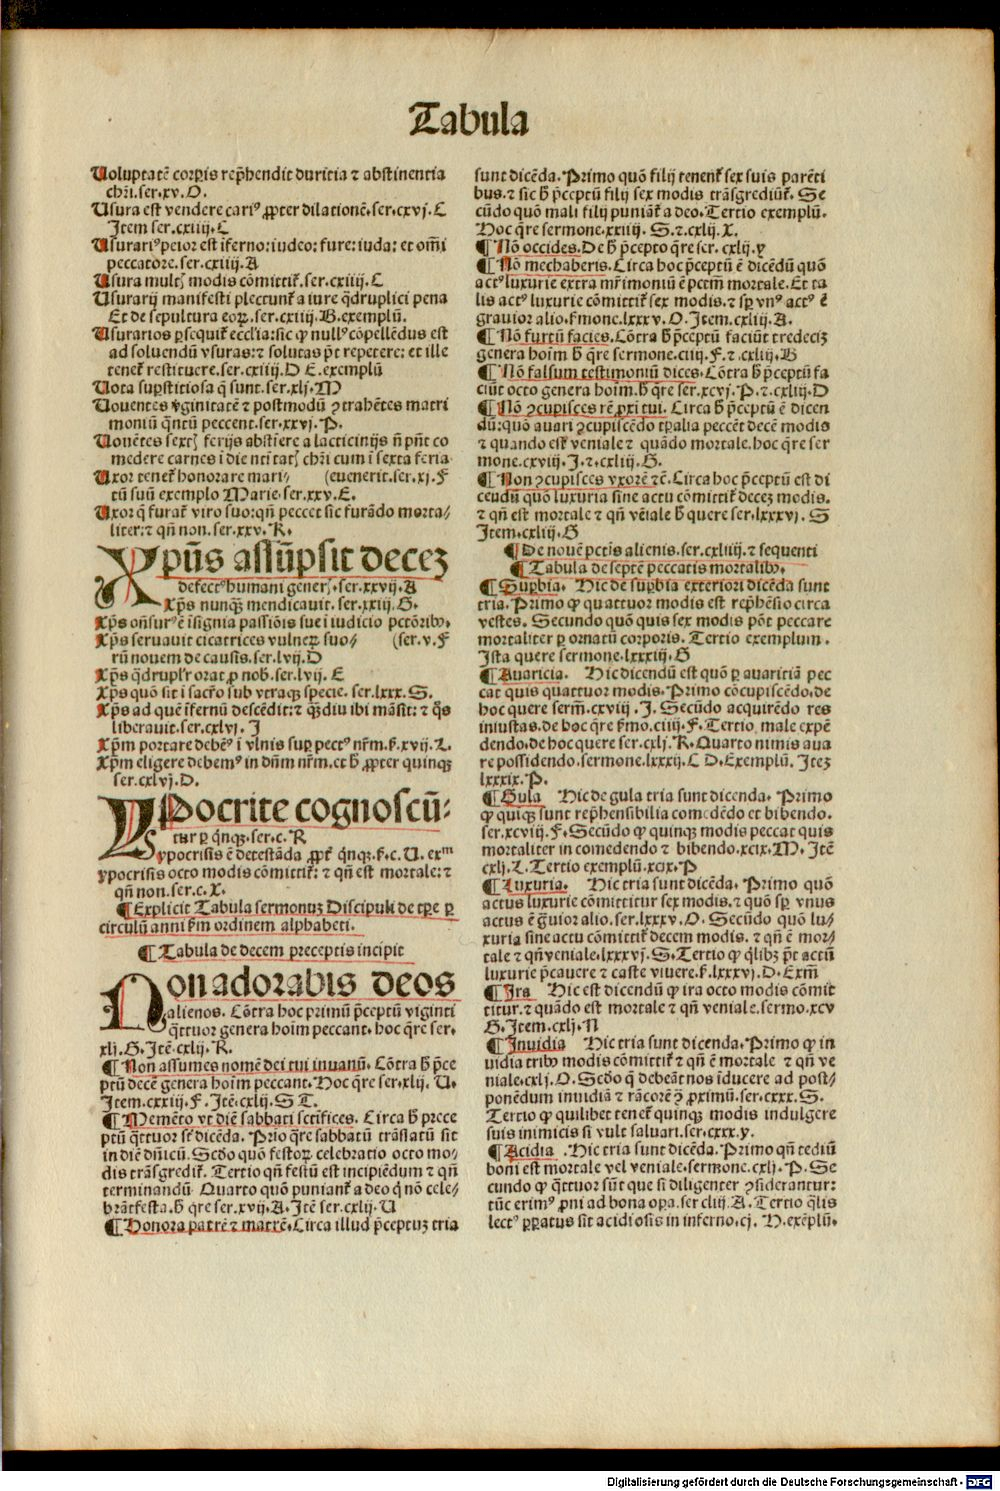 Tabula
Uoluptatẽ corꝑis rep̃hendit duritia ⁊ abstinentia
chr̃i.ser.xv.O.
Usura est vendere cariꝰ ꝓpter dilationẽ.ser.cxvj.C
Item ser.cxiiij.C
Usurariꝰ peior est ĩferno: iudeo: fure: iuda: et om̃i
peccatore.ser.cxiiij.A
Usura multꝭ modis cõmittit̃.ser.cxiiij.C
Usurarij manifesti plectunt̃ a iure q̃druplici pena
Et de sepultura eoꝝ.ser.cxiiij.B.exemplũ.
Usurarios ꝑsequit̃ eccl̃ia: sic ꝙ nullꝰ cõpellẽdus est
ad soluendũ vsuras: ⁊ solutas põt repetere: et ille
tenet̃ restituere.ser.cxiiij.D E.exemplũ
Uota suꝑstitiosa q̃ sunt.ser.xlj.M
Uouentes v̓ginitatẽ ⁊ postmodũ ꝯtrahẽtes matri
moniũ q̃ntũ peccent.ser.xxvj.P.
Uouẽtes sextꝭ ferijs abstĩere a lacticinijs ñ pñt co
medere carnes ĩ die nti tatꝭ chr̃i cum ĩ sexta feria
Uxor tenet̃ honorare mari⸗ (euenerit.ser.xj.F
tũ suũ exemplo Marie.ser.xxv.E.
Uxor q̃ furat̃ viro suo: qñ peccet sic furãdo morta⸗
liter: ⁊ qñ non.ser.xxv.R.
Xp̃us assũpsit decez
defectꝰ humani generꝭ.ser.xxvij.A
Xp̃s nunqꝫ mendicauit.ser.xxiij.G.
Xp̃s oñsurꝰ ẽ ĩsignia passiõis sue ĩ iudicio pctõribꝰ.
Xp̃s seruauit cicatrices vulneꝝ suo⸗ (ser.v.F
rũ nouem de causis.ser.lvij.D
Xp̃s q̃druplr̃ orat ꝓ nob̃.ser.lvij.E
Xp̃s quõ sit ĩ sacr̃o sub vtraqꝫ specie.ser.lxxx.S.
Xp̃s ad quẽ ĩfernũ descẽdit: ⁊ qꝫdiu ibi mãsit: ⁊ q̃s
liberauit.ser.cxlvj.I
Xp̃m portare debẽꝰ ĩ vlnis suꝑ pectꝰ nr̃m.ẜ.xvij.L.
Xp̃m eligere debemꝰ in dñm nr̃m.et h̃ ꝓpter quinqꝫ
ser.cxlvj.D.
YPocrite cognoscũ⸗
tur ꝑ q̃nqꝫ.ser.c.R
Ypocrisis ẽ detestãda ꝓpt̃ q̃nqꝫ.ẜ.c.U.exm
Ypocrisis octo modis cõmittit̃: ⁊ qñ est mortale: ⁊
qñ non.ser.c.X.
¶ Explicit Tabula sermonuꝫ Discipuli de tꝑe ꝑ
circulũ anni ẜm ordinem alphabeti.
¶ Tabula de decem preceptis incipit
Non adorabis deos
alienos. Cõtra hoc primũ p̃ceptũ viginti
q̃ttuor genera hoĩm peccant.hoc q̃re ser.
xlj.G.Itẽ.cxlij.R.
¶ Non assumes nomẽ dei tui inuanũ. Cõtra h̃ p̃ce
ptũ decẽ genera hoĩm peccant.Hoc q̃re ser.xlij.U.
Item.cxxiij.F.Itẽ.cxlij.S T.
¶ Memẽto vt diẽ sabbati sctĩfices. Circa h̃ prece
ptũ q̃ttuor st̃ dicẽda. Prĩo q̃re sabbatũ trãslatũ sit
in diẽ dñicũ. Scdo quõ festoꝝ celebratio octo mo⸗
dis trãsgredit̃. Tertio qñ festũ est incipiẽdum ⁊ qñ
terminandũ Quarto quõ puniant̃ a deo q̃ nõ cele⸗
brãt festa.h̃ q̃re ser.xvij.A.Itẽ ser.cxlij.U
¶ Honora patrẽ ⁊ matrẽ. Circa illud p̃ceptuꝫ tria
sunt dicẽda. Primo quõ filij tenent̃ sex suis parẽti
bus. ⁊ sic h̃ p̃ceptũ filij sex modis trãsgrediũt̃. Se
cũdo quõ mali filij puniãt̃ a deo. Tertio exemplũ.
Hoc q̃re sermone.xxiiij.S.⁊.cxlij.X.
¶ Nõ occides. De h̃ p̃cepto q̃re ser.cxlij.y
¶ Nõ mechaberis. Circa hoc p̃ceptũ ẽ dicẽdũ quõ
actꝰ luxurie extra mr̃imoniũ ẽ pctm̃ mortale. Et ta
lis actꝰ luxurie cõmittit̃ sex modis. ⁊ sꝑ vnꝰ actꝰ ẽ
grauior alio.ẜmone.lxxxv.O.Item.cxliij.A.
¶ Nõ furtũ facies. Cõtra h̃ p̃ceptũ faciũt tredeciꝫ
genera hoĩm h̃ q̃re sermone.ciiij.F.⁊.cxliij.B
¶ Nõ falsum testimoniũ dices. Cõtra h̃ p̃ceptũ fa
ciũt octo genera hoĩm.h̃ q̃re ser.xcvj.P.⁊.cxliij.D
¶ Nõ ꝯcupisces rẽ ꝓxi tui. Circa h̃ p̃ceptũ ẽ dicen
dũ: quõ auari ꝯcupiscẽdo tꝑalia peccẽt decẽ modis
⁊ quando est veniale ⁊ quãdo mortale.hoc q̃re ser
mone.cxviij.I.⁊.cxliij.G.
¶ Non ꝯcupisces vxorẽ ⁊c̃. Circa hoc p̃ceptũ est di
cendũ quõ luxuria sine actu cõmittit̃ deceꝫ modis.
⁊ qñ est mortale ⁊ qñ vẽiale h̃ quere ser.lxxxvj.S
Item.cxliij.G
¶ De nouẽ pctĩs alienis.ser.cxliiij.⁊ sequenti
¶ Tabula de septẽ peccatis mortalibꝰ.
¶ Suꝑbia. Hic de suꝑbia exteriori dicẽda sunt
tria. Primo ꝙ quattuor modis est rep̃hẽsio circa
vestes. Secundo quõ quis sex modis põt peccare
mortaliter ꝑ ornatũ corporis. Tertio exemplum.
Ista quere sermone.lxxxiij.G
¶ Auaricia. Hic dicendũ est quõ ꝑ auaritiã pec
cat quis quattuor modis. Primo cõcupiscẽdo.de
hoc quere serm̃.cxviij.I. Secũdo acquirẽdo res
iniustas.de hoc q̃re ẜmo.ciiij.F. Tertio male expẽ
dendo.de hoc quere ser.cxlj.R. Quarto nimis aua
re possidendo.sermone.lxxxij.C D.Exemplũ. Iteꝫ
lxxxix.P.
¶ Gula Hic de gula tria sunt dicenda. Primo
ꝙ quiqꝫ sunt rep̃hensibilia comedẽdo et bibendo.
ser.xcviij.F. Secũdo ꝙ quinqꝫ modis peccat quis
mortaliter in comedendo ⁊ bibendo.xcix.M.Itẽ
cxlj.L.Tertio exemplũ.xcix.P
¶ Luxuria. Hic tria sunt dicẽda. Primo quõ
actus luxurie cõmittitur sex modis. ⁊ quõ sꝑ vnus
actus ẽ g̃uior alio.ser.lxxxv.O. Secũdo quõ lu⸗
xuria sine actu cõmittit̃ decem modis. ⁊ qñ ẽ mor⸗
tale ⁊ qñ veniale.lxxxvj.S. Tertio ꝙ q̃libꝫ põt actũ
luxurie p̃cauere ⁊ caste viuere.ẜ.lxxxvj.D.Exm̃
¶ Ira Hic est dicendũ ꝙ ira octo modis cõmit
titur. ⁊ quãdo est mortale ⁊ qñ veniale.sermo.xcv
G.Item.cxlj.N
¶ Inuidia Hic tria sunt dicenda. Primo ꝙ in
uidia tribꝰ modis cõmittit̃ ⁊ qñ ẽ mortale ⁊ qñ ve
niale.cxlj.O. Scdo q̃ debeãt nos ĩducere ad post⸗
ponẽdum inuidiã ⁊ rãcorẽ ꝯ̃ ꝓximũ.ser.cxxx.S.
Tertio ꝙ quilibet tenet̃ quinqꝫ modis indulgere
suis inimicis si vult saluari.ser.cxxx.y.
¶ Acidia. Hic tria sunt dicẽda. Primo qñ tediũ
boni est mortale vel veniale.sermone.cxlj.P. Se
cundo ꝙ q̃ttuor sũt que si diligenter ꝯsiderantur:
tũc erimꝰ ꝓni ad bona oꝑa.ser cliij.A. Tertio q̃lis
lectꝰ p̃ꝑatus sit acidiosis in inferno.cj.H.exẽplũ.
Digitalisierung gefördert durch die Deutsche Forschungsgemeinschaft - DFG